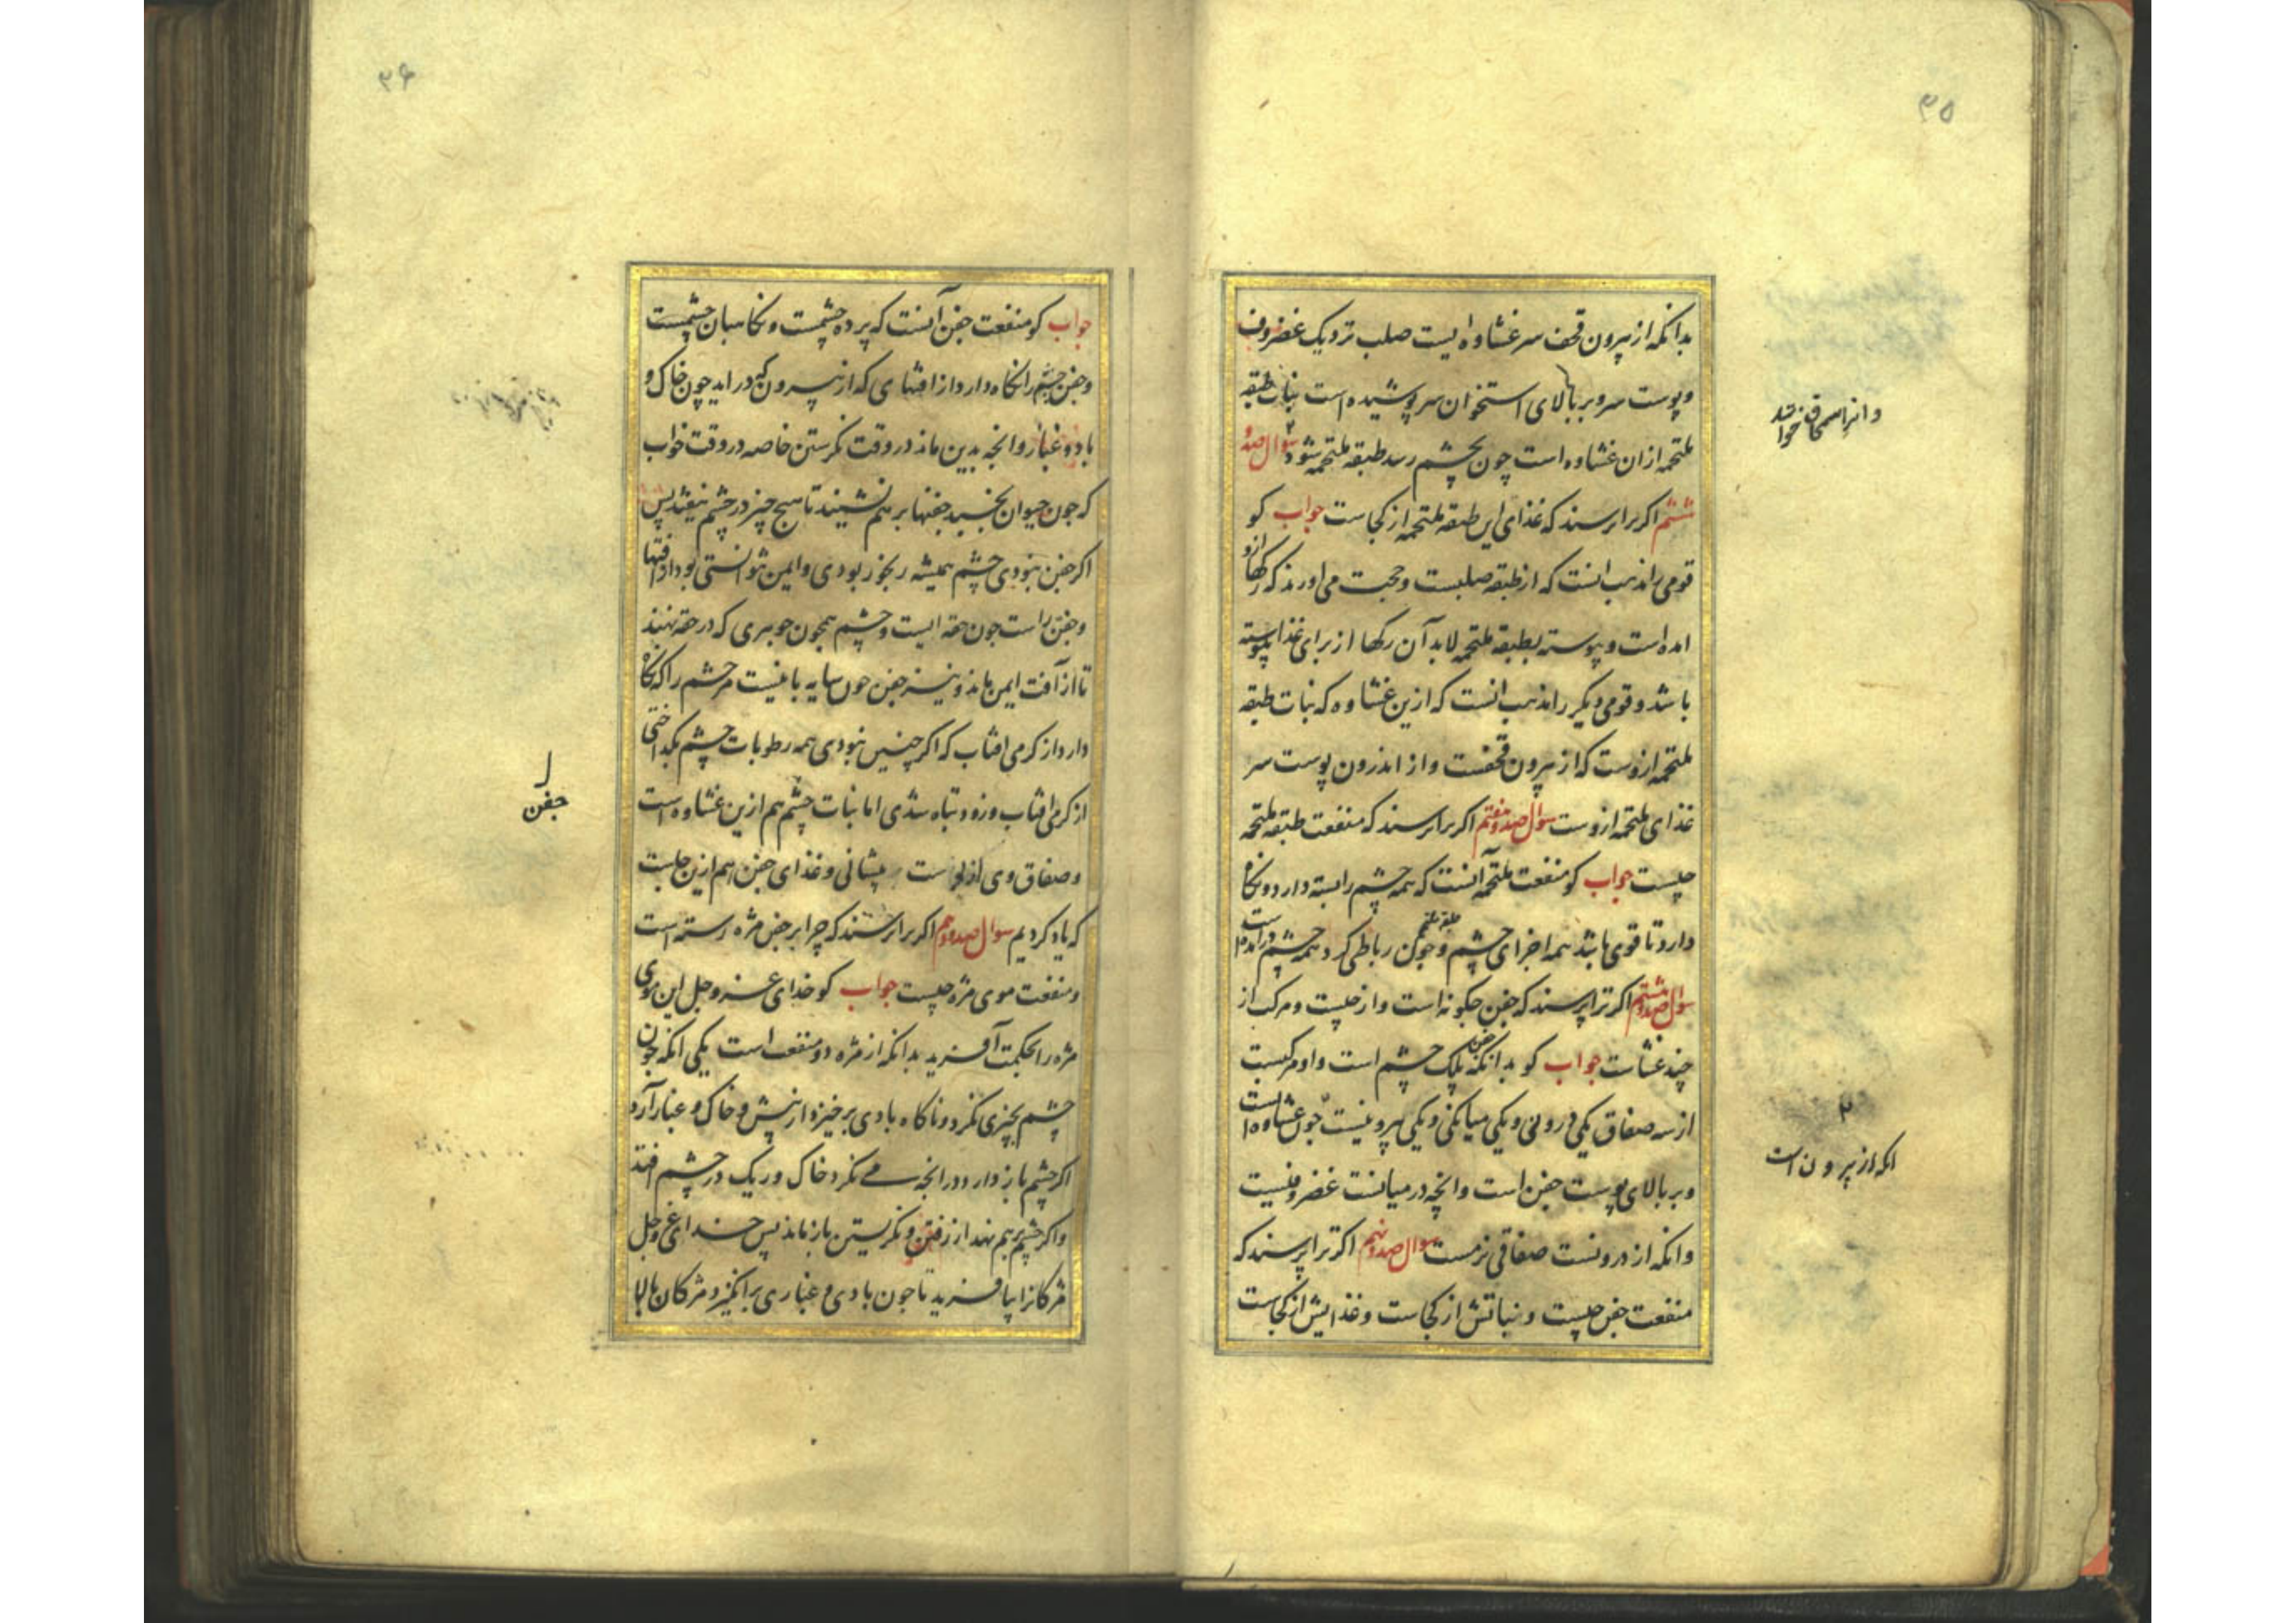 ۳۵
بدانکه از بیرون قحف سر غشاوه ایست صلب نزدیک غضروف
و پوست سر و بر بالای استخوان سر پوشیده است نبات طبقه
ملتحمه از ان غشاوه است چون بچشم رسد طبقه ملتحمه شود سوال صد و
ششم اکر ترا پرسند که غذای این طبقه ملتحمه از کجاست جواب کو
قومی را مذهب انست که از طبقه صلبیست و حجت می اورند که رکها ازو
امده است و پیوسته بطبقه ملتحمه لابد آن رکها از برای غذا پیوسته
باشد و قومی دیکر را مذهب انست که ازین غشاوه که نبات طبقه
ملتحمه ازوست که از بیرون قحفست و از اندرون پوست سر
غذای ملتحمه ازوست سوال صد و هفتم اکر ترا پرسند که منفعت طبقه ملتحمه
چیست جواب کو منفعت ملتحمه آنست که همه چشم را بسته دارد و نکاه
دارد تا قوی باشد همه اجزای چشم و چون رباطی کرد همه چشم درامده است
سوال صد و هشتم اکر ترا پرسند که جفن چکونه است و از چیست و مرکب از
چند غشاست جواب کو بدانکه جفن پلک چشم است و او مرکبست
از سه صفاق یکی درونی و یکی میانکی و یکی بیرونیست چون غشاوه است
و بر بالای پوست جفن است و انچه در میانست غضروفیست
و انکه از درونست صفاقی نرمست سوال صد و نهم اکر ترا پرسند که
منفعت جفن چیست و نباتش از کجاست و غذایش از کجاست
و انرا سمحاق خوانند
۲
انکه از بیرون است
۳۶
جواب کو منفعت جفن آنست که پرده چشمست و نکاهبان چشمست
و جفن چشم را نکاه دارد از افتهای که از بیرون در اید چون خاک و
باد و غبار و انچه بدین ماند در وقت نکرستن خاصه در وقت خواب
که چون حیوان بخسبد جفنها بر هم نشیند تا هیچ چیز در چشم نیفتد پس
اکر جفن نبودی چشم همیشه رنجور بودی و ایمن نتوانستی بود از افتها
و جفن راست چون حقه ایست و چشم همچون جوهری که در حقه نهند
تا از آفت ایمن ماند و نیز جفن چون سایه بانیست مر چشم را که نکاه
دارد از کرمی افتاب که اکر چنین نبودی همه رطوبات چشم بکداختی
از کرمی افتاب و زود تباه شدی اما نبات چشم هم ازین غشاوه است
و صفاق وی از پوست پیشانی و غذای جفن هم ازین جاست
که یاد کردیم سوال صد و دهم اکر ترا پرسند که چرا بر جفن مژه رسته است
و منفعت موی مژه چیست جواب کو خدای عز و جل این موی
مژه را بحکمت آفرید بدانکه از مژه دو منفعت است یکی انکه چون
چشم بچیزی نکرد و ناکاه بادی برخیزد از پیش و خاک و غبار آرد
اکر چشم باز دارد و در انچه می نکرد خاک و ریک در چشم افتد
و اکر چشم بر هم نهد از رفتن و نکریستن باز ماند پس خدای عز و جل
مژکانرا بیافرید تا چون بادی و غباری برانکیزد مژکان بالا
جفن